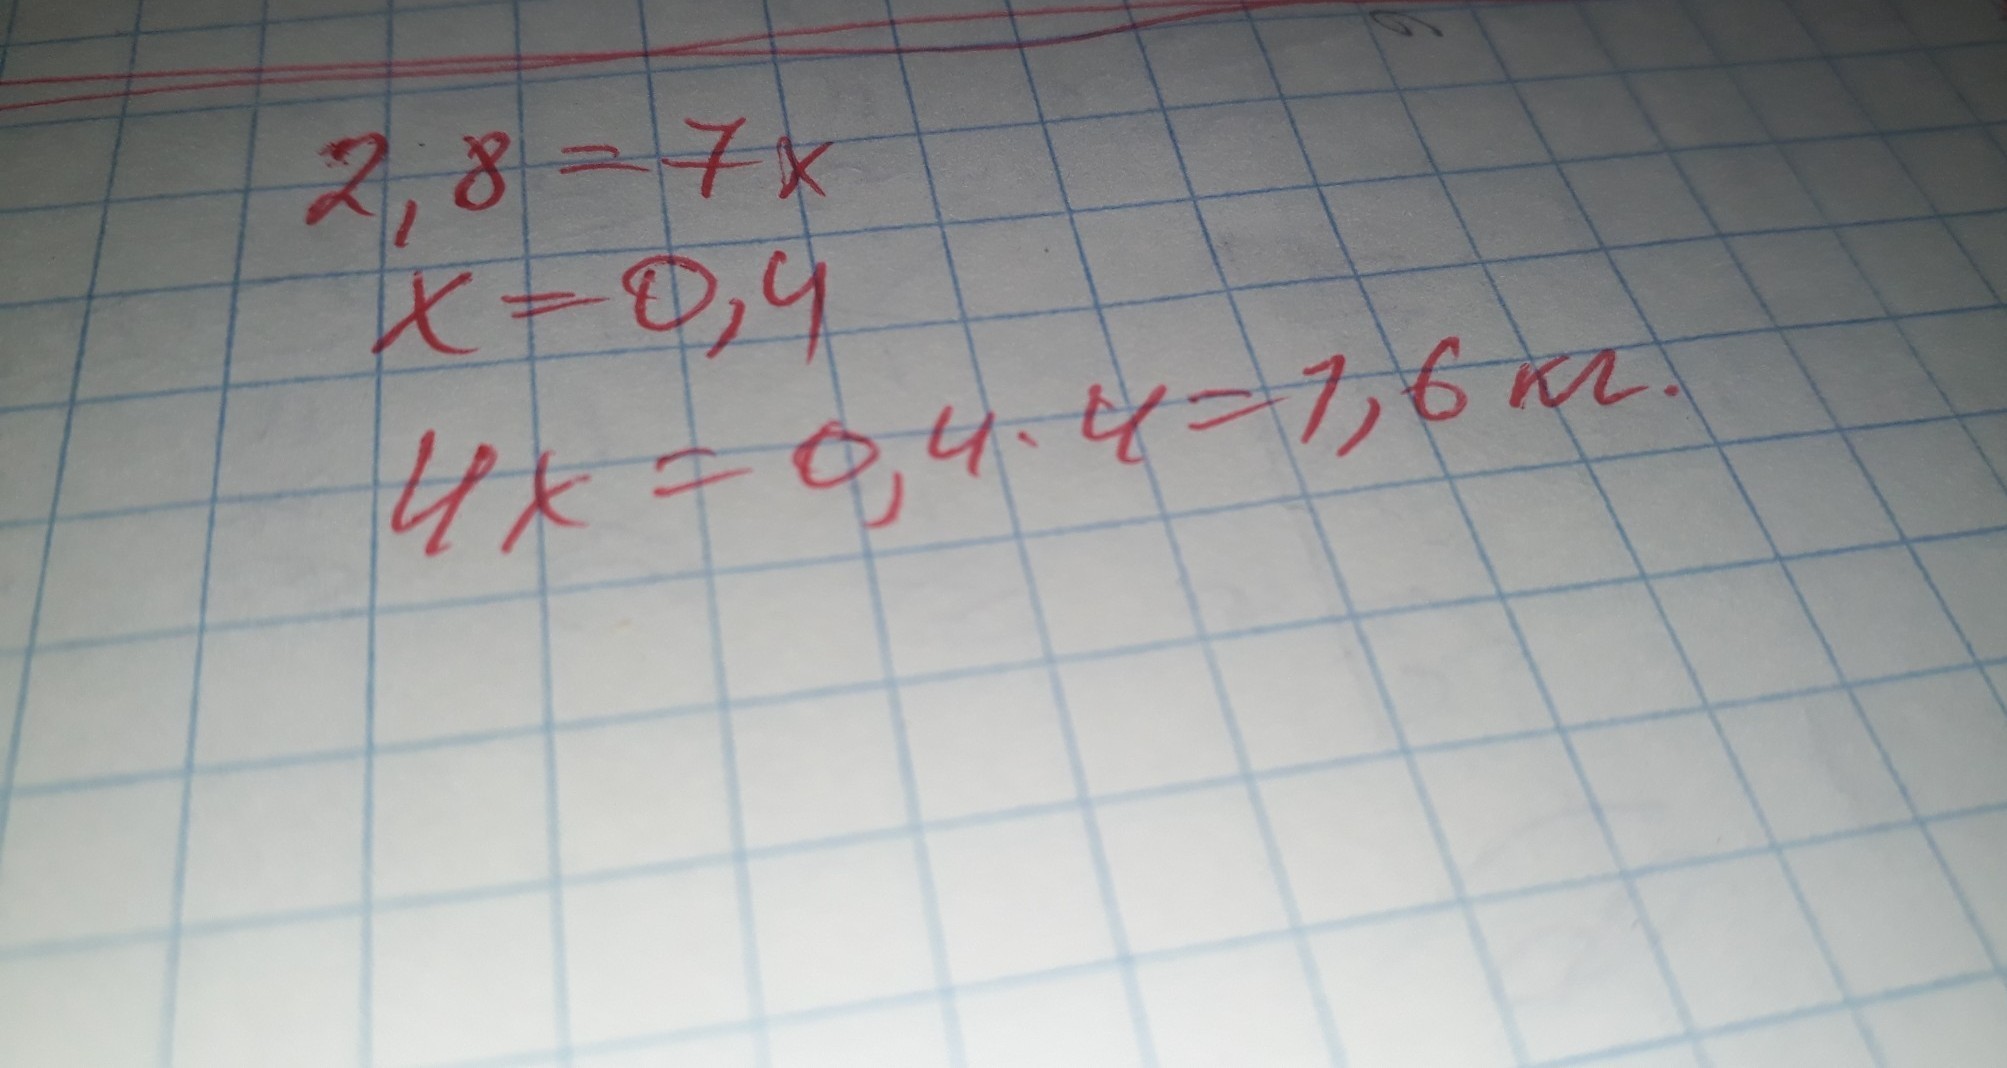 2,8 = 7x
x = 0,4
4x = 0,4 · 4 = 1,6 кг.